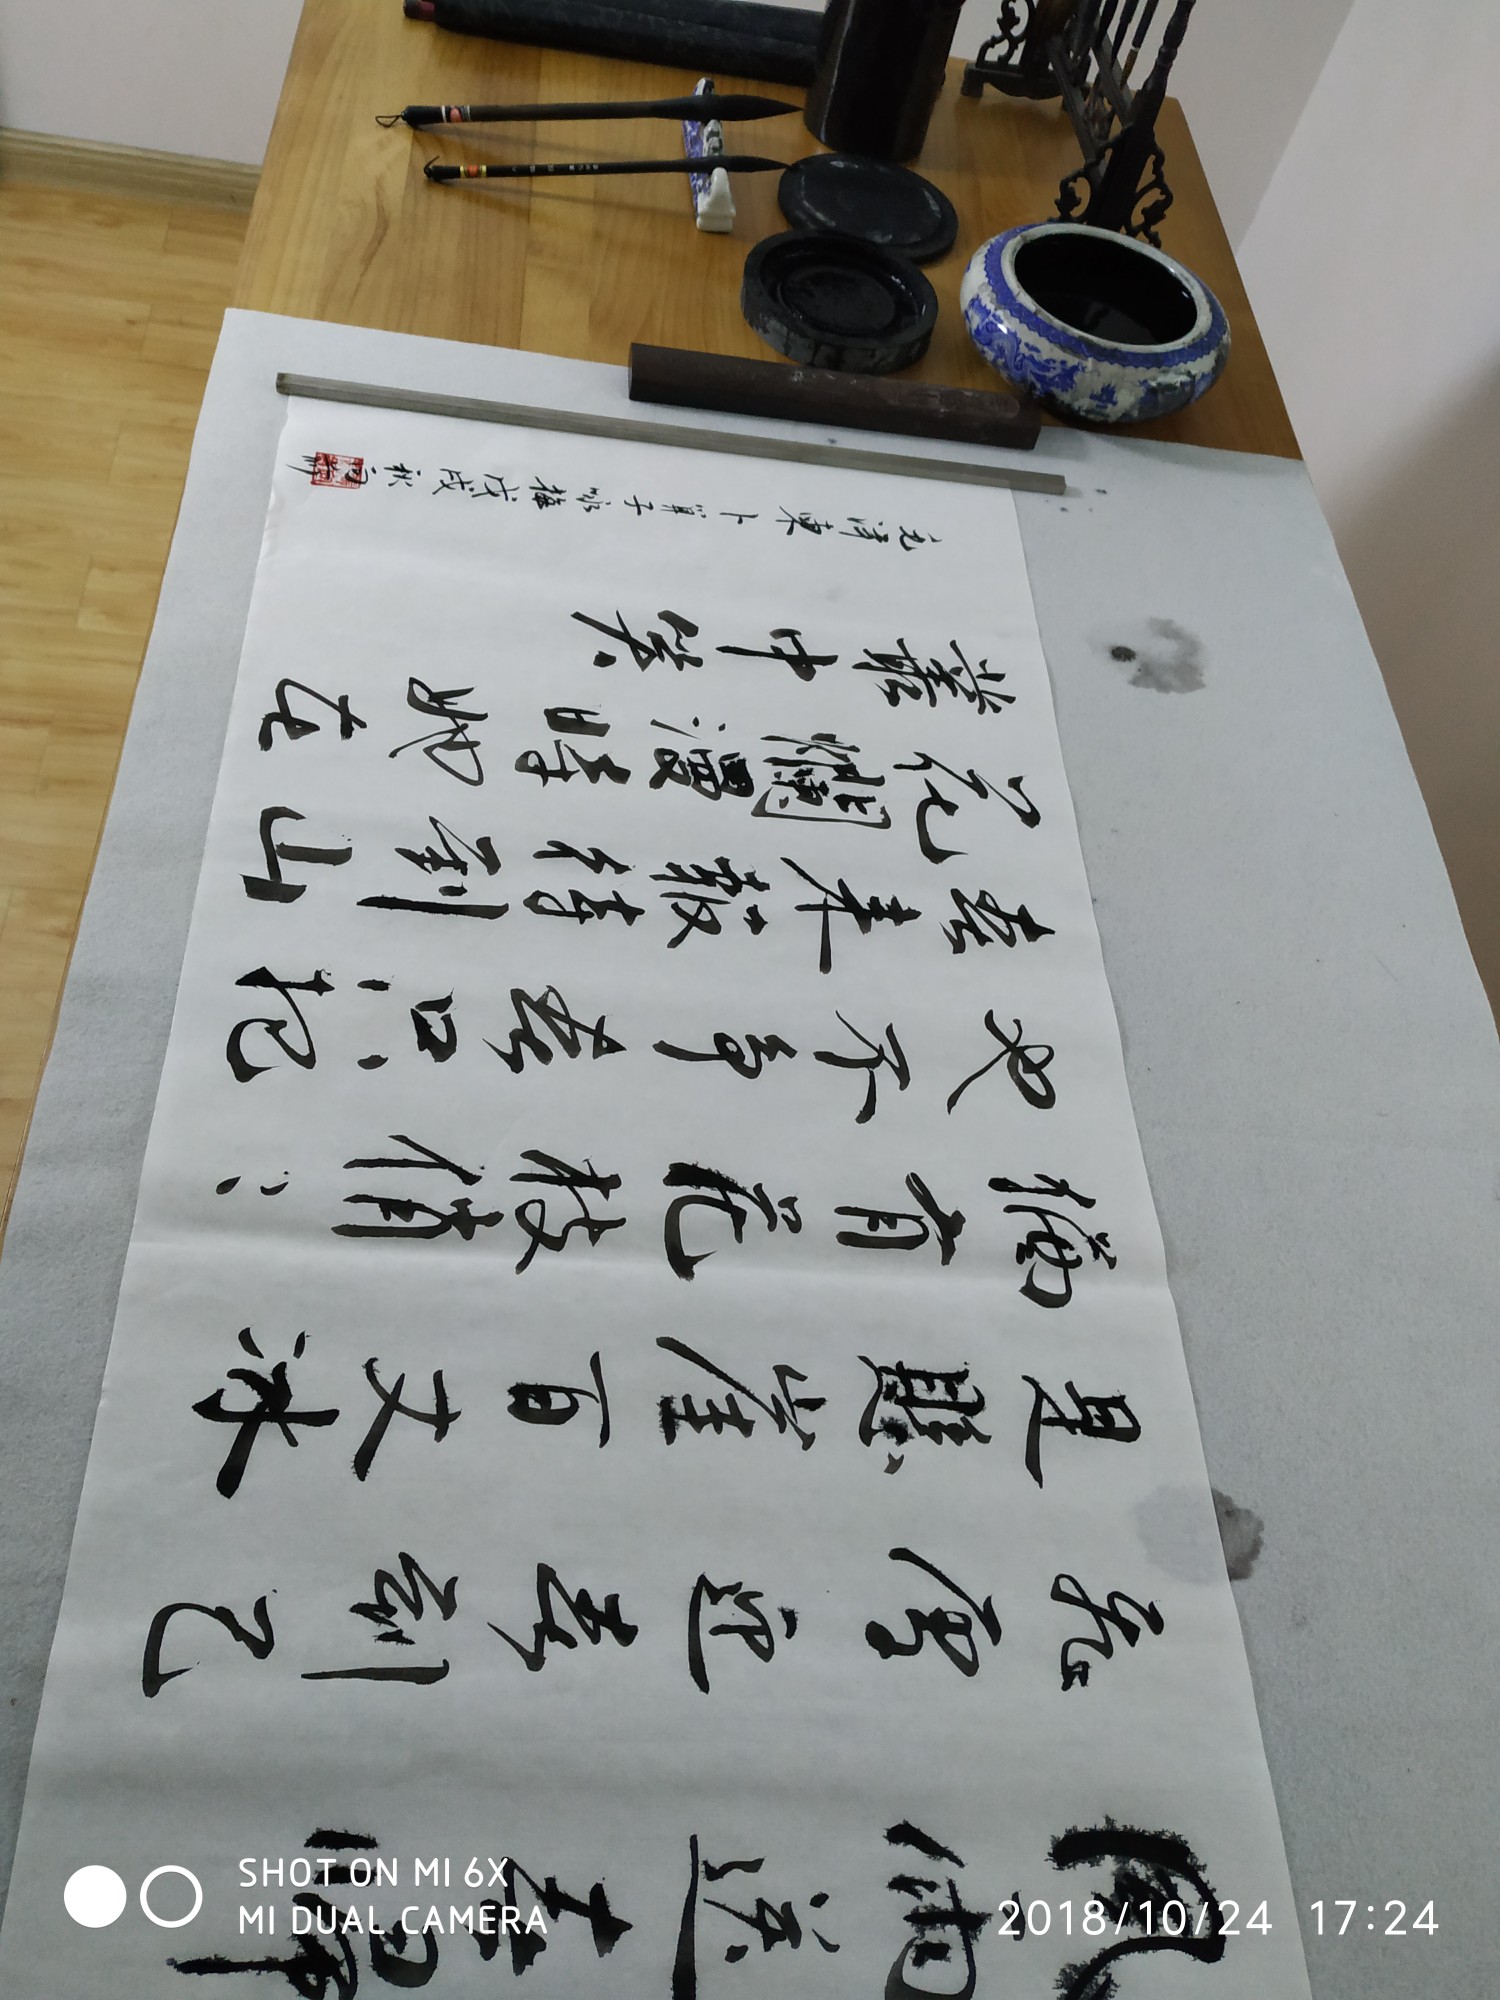 風雨送春歸
飛雪迎春到已
是懸崖百丈冰
猶有花枝俏〻
也不爭春只把
春來報待到山
花爛漫時她在
叢中笑
毛澤東卜算子咏梅戊戌秋月
SHOT ON MI 6X
MI DUAL CAMERA
2018/10/24 17:24